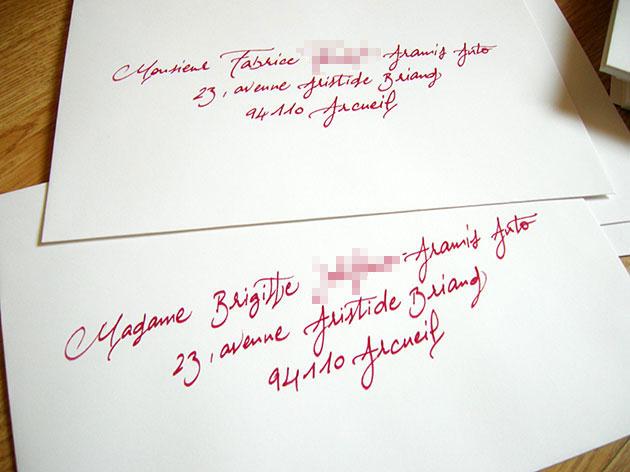 Monsieur Fabrice Aramis Auto
23, avenue Aristide Briand
94110 Arcueil
Madame Brigitte Aramis Auto
23, avenue Aristide Briand
94110 Arcueil